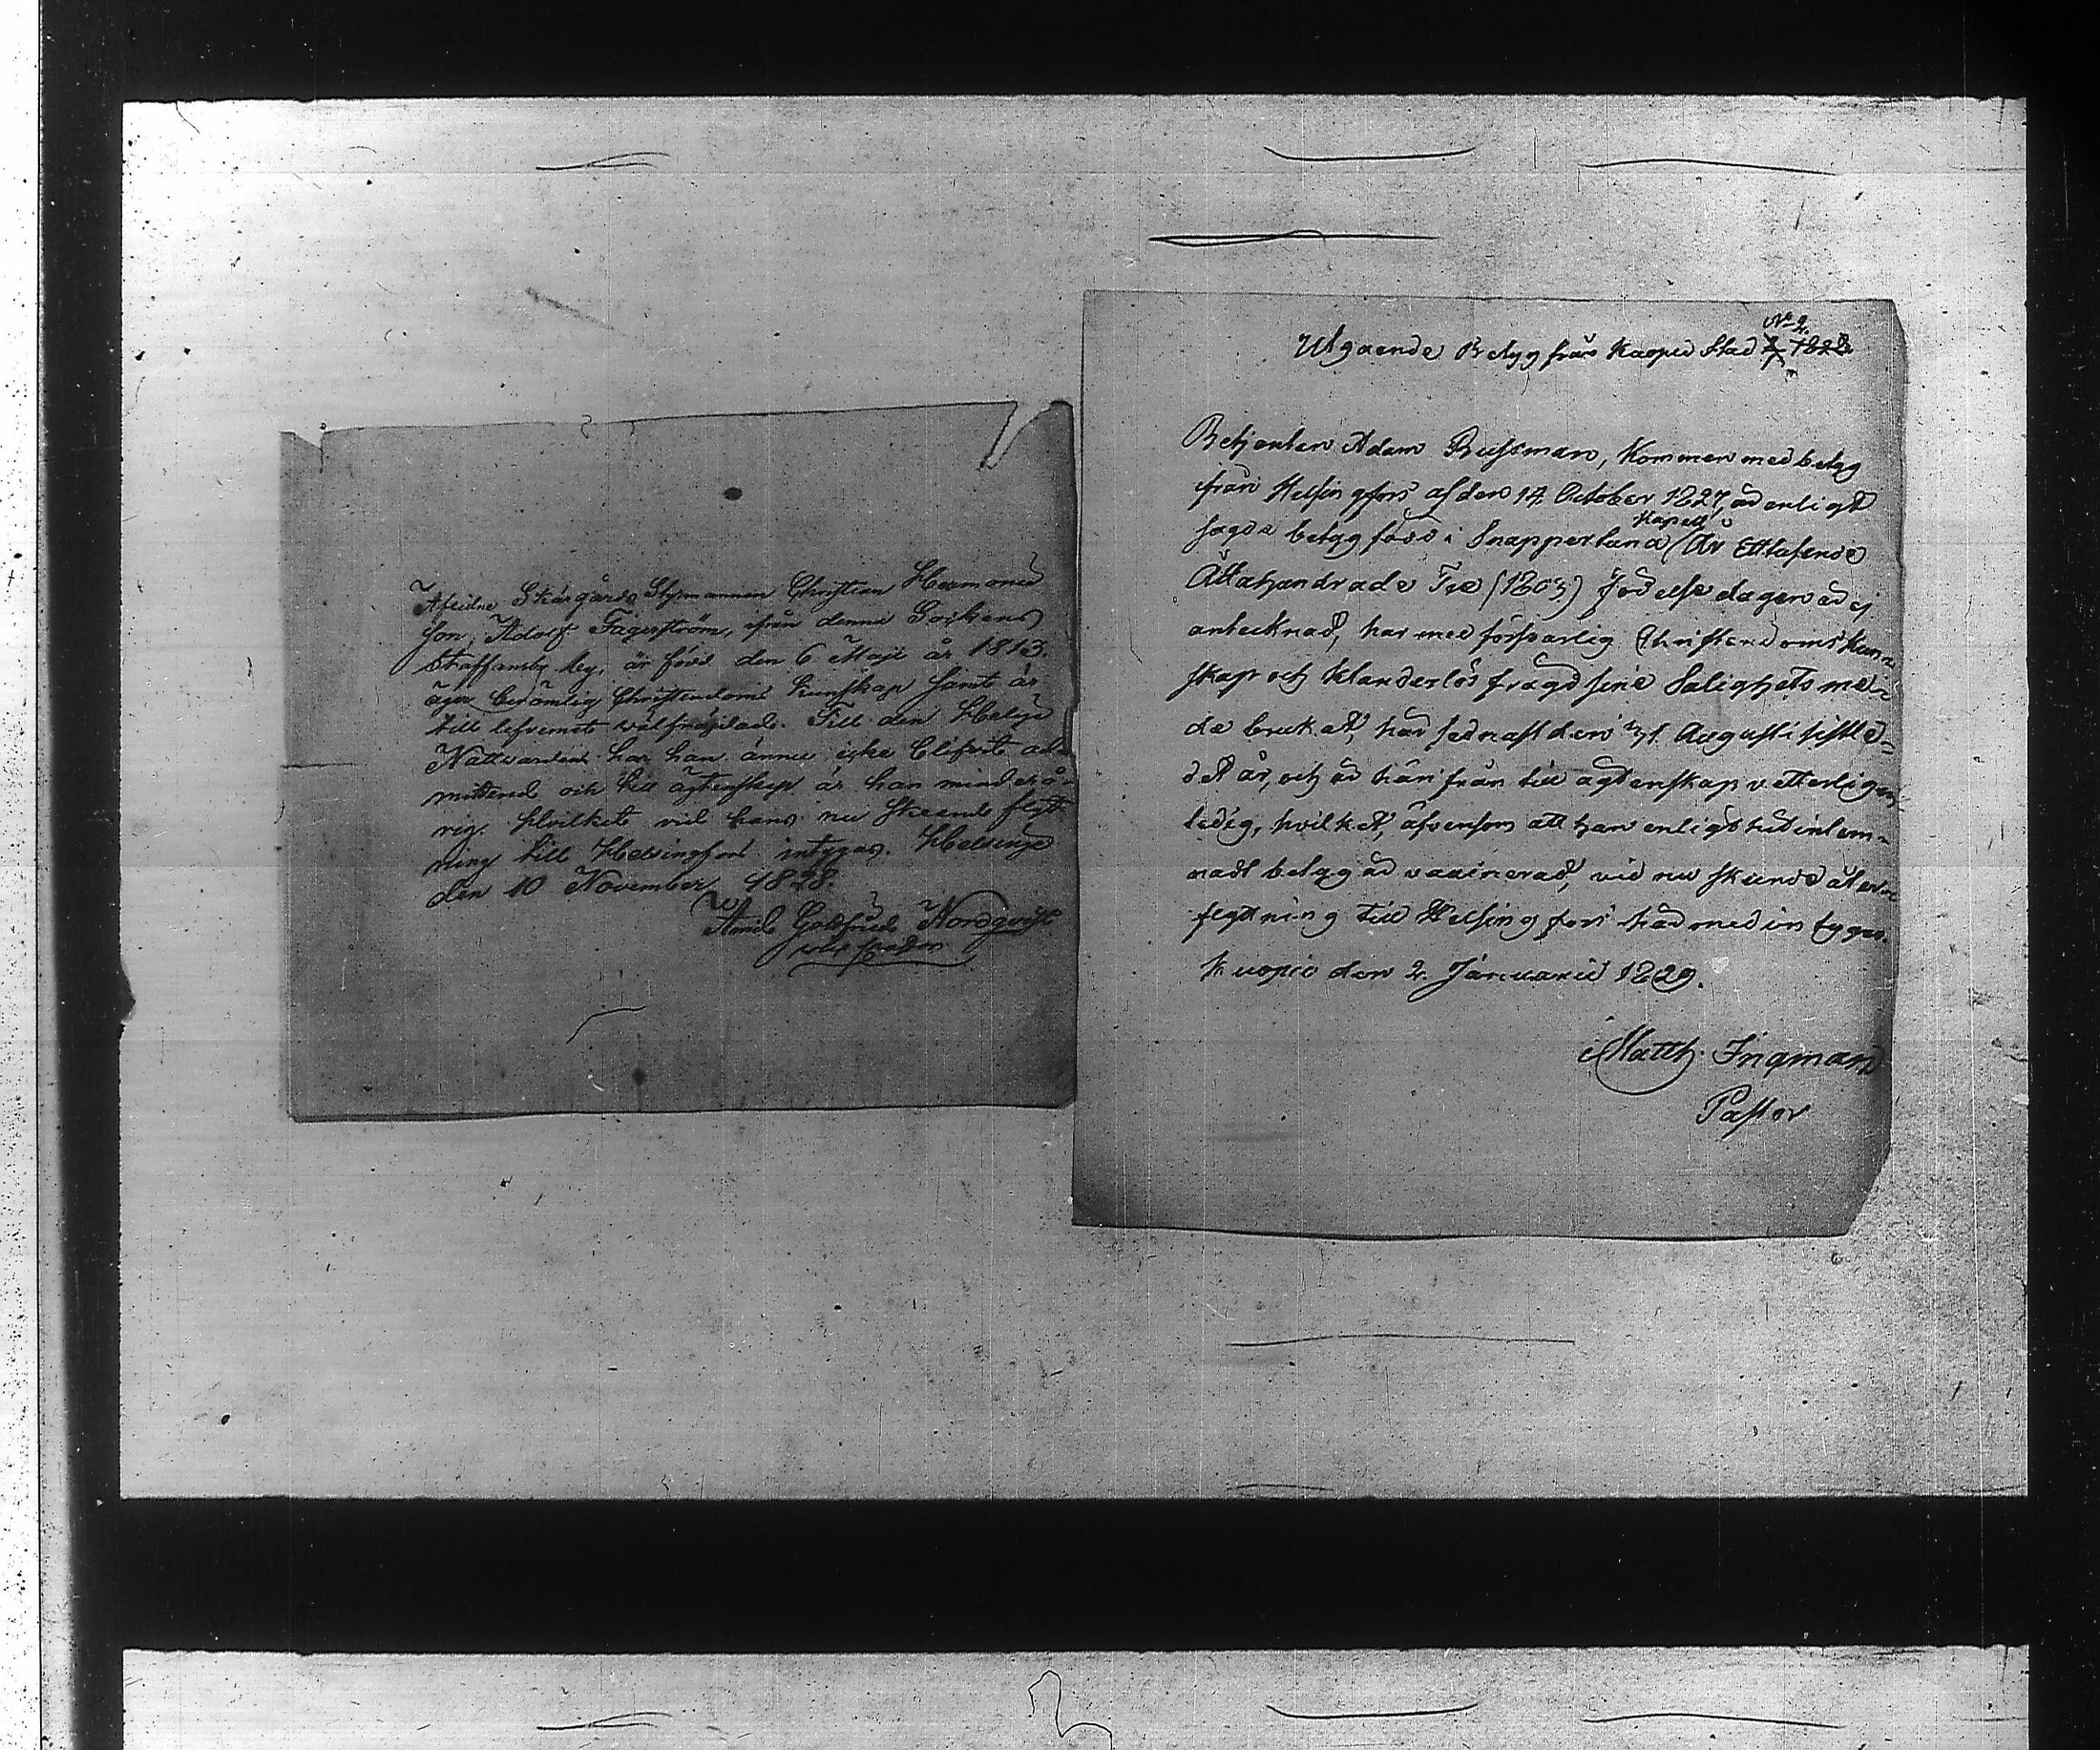 Afledne Skärgårds Styrmannen Christian Hermans
son, Adolf Fagerström, ifrån denne Sockens
Staffansby by, är född den 6 Maji år 1813.
äger berömlig Christendoms kunskap samt är
till lefvernet wälfrejdad. Till den Helga
Nattvarden har han ännu icke blifvit ad-
mitterad och till ägtenskap är han minderå-
rig. Hvilket vid hans nu skeende flytt-
ning till Helsingfors intygas. Helsinge
den 10 November 1828.
Arvid Gottfried Nordqvist
Utgaende Betyg från Kuopio Stad
No 2.
Betjenten Adam Bussman, kommen med betyg
ifrån Helsingfors af den 14 October 1827, är enligt
sagde betyg född i Snappertuna Kapell i (År Ettusende
Åttahundrade Tre (1803) födelsedagen är ej
antecknad, har med försvarlig Christendoms Kun-
skap och klanderlös fragd sine Salighets me-
de brukat, här sednast den Augusti sistled-
det år, och är härifrån till agtenskap vetterligen
ledig, hvilket, äfvensom att han enligt hit inlem-
nadt betyg är vaccinerad, vid nu skeende åter-
flyttning till Helsingfors härmed intygas.
Kuopio den 2. Januarii 1829.
Matth. Ingman
Pastor